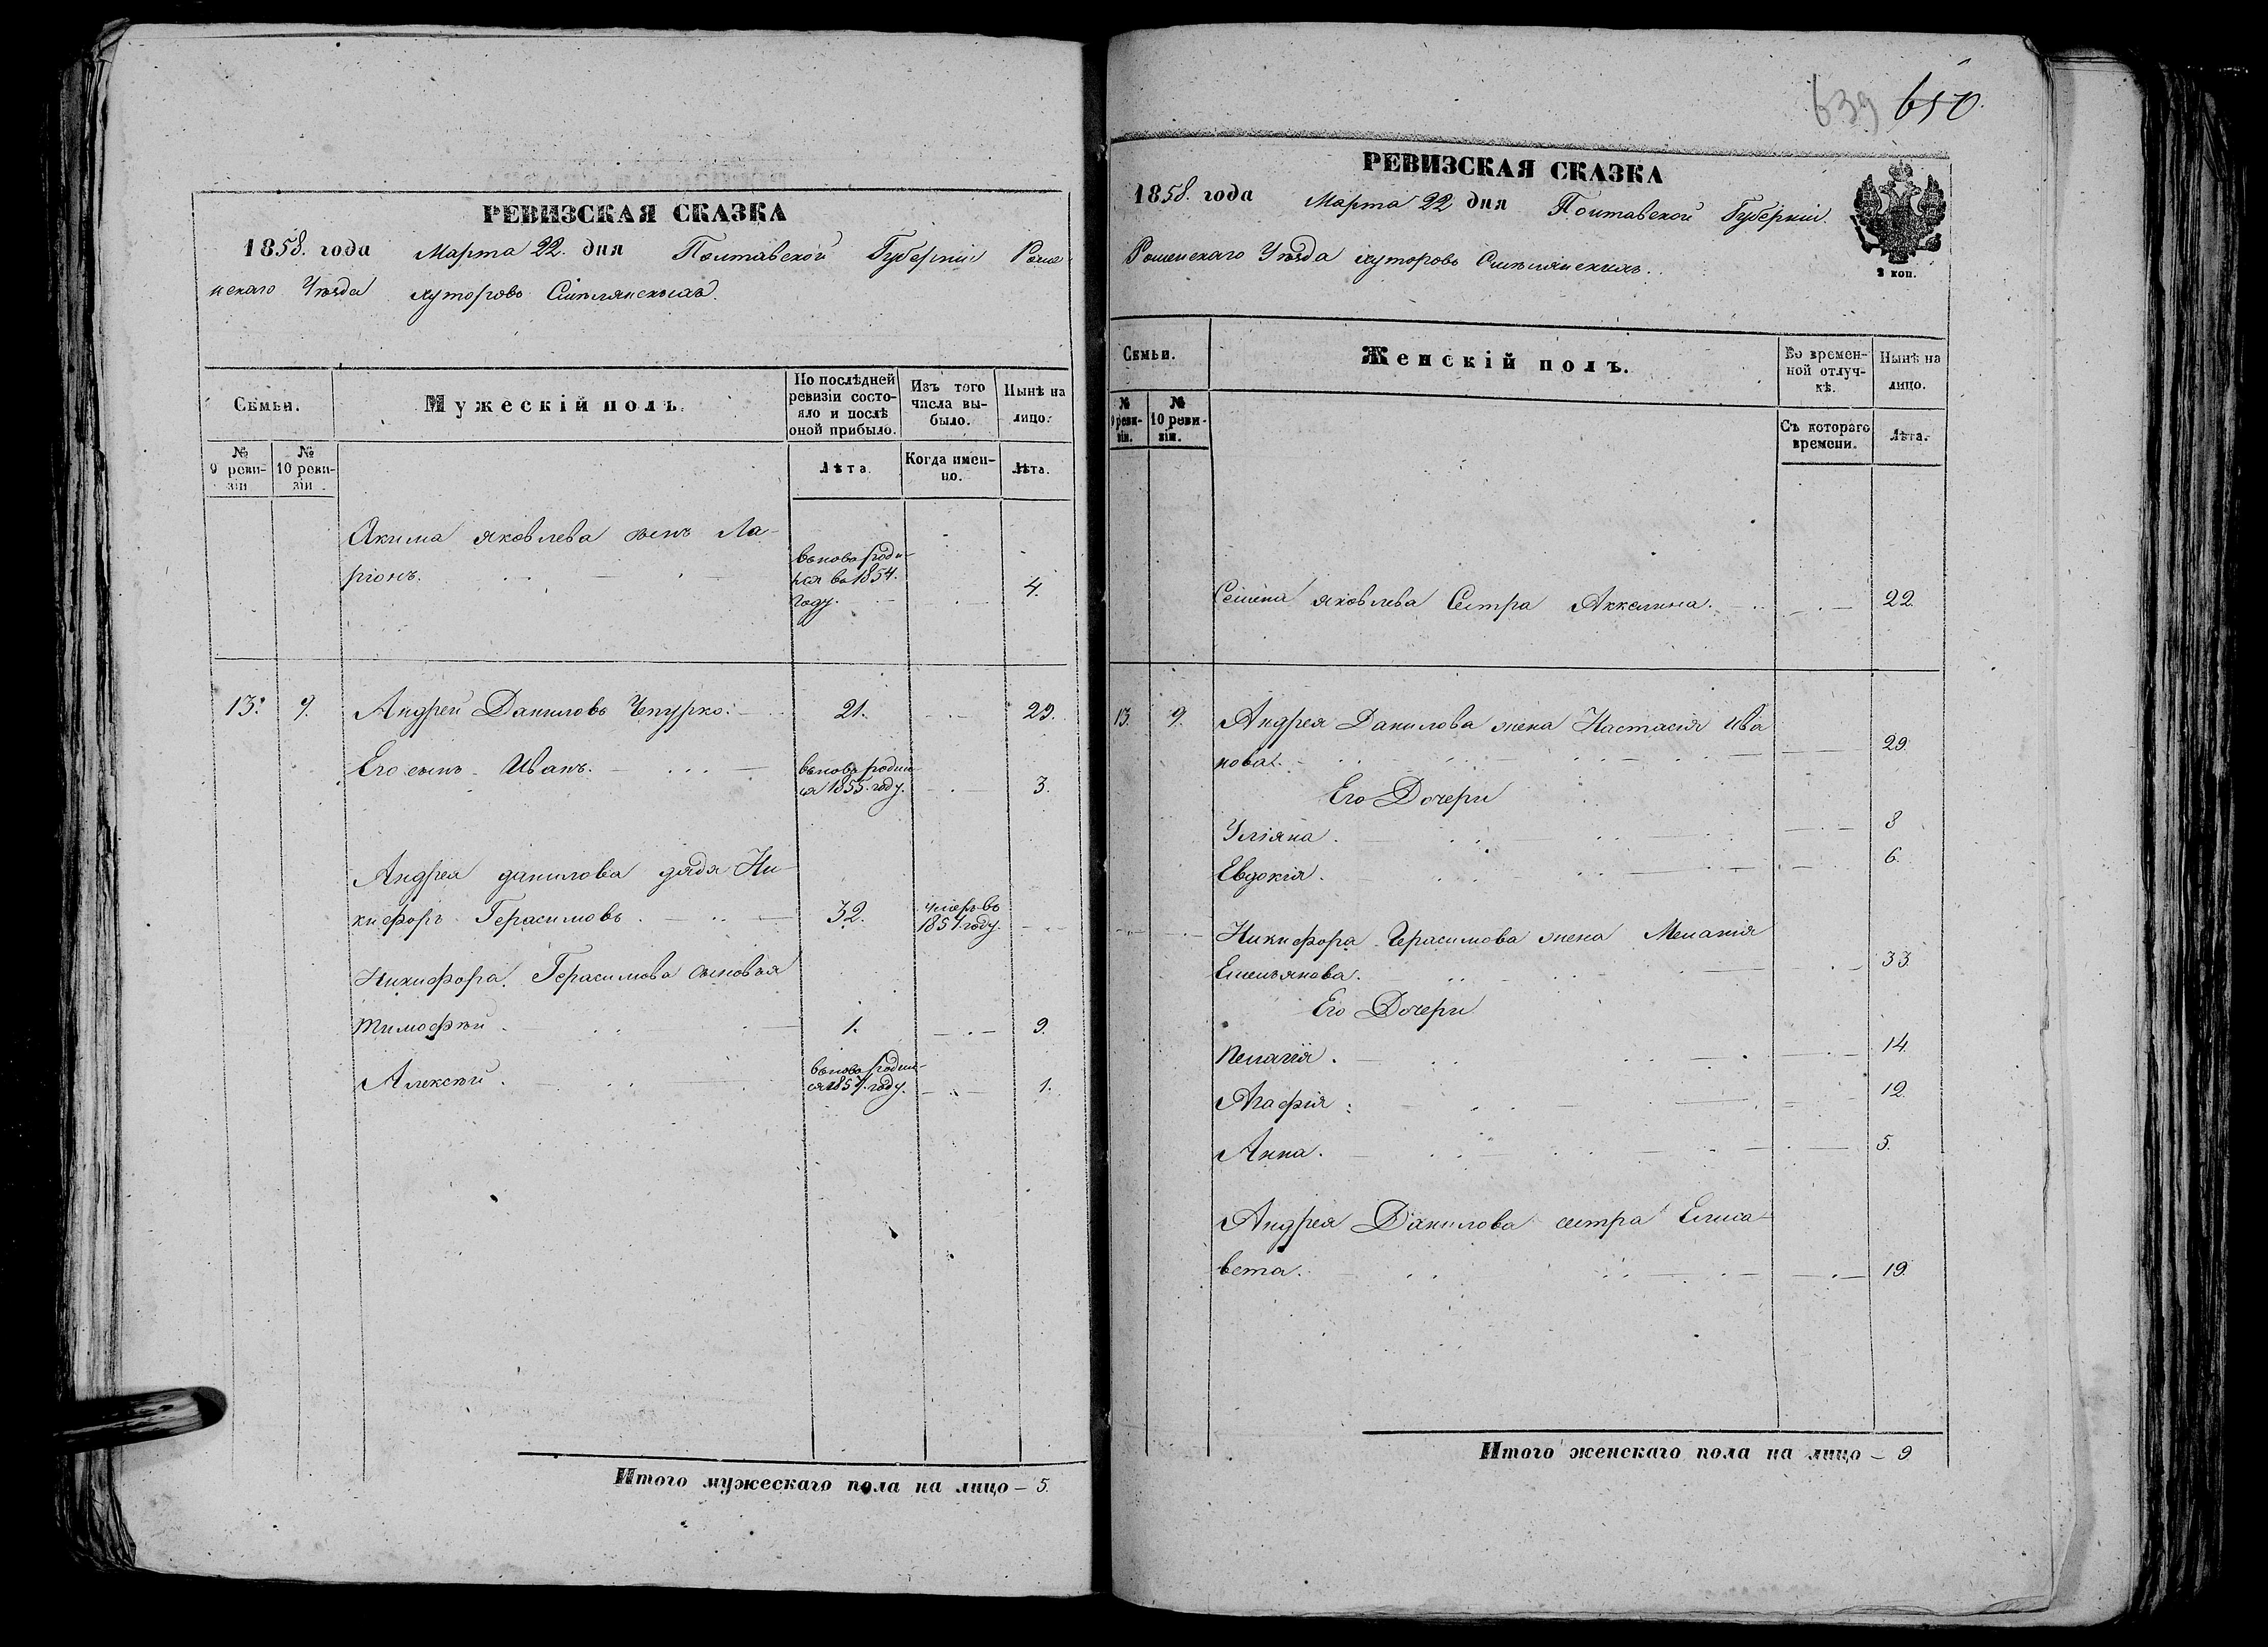 РЕВИЗСКАЯ СКАЗКА
1858. года Марта 22. дня Полтавской Губерніи Роме
нскаго Уѣзда хуторовъ Смѣлянскихъ.
Семьи.
Мужескій полъ.
По послѣдней
ревизіи состо-
яло и послѣ
оной прибыло.
Изъ того
числа вы-
было.
Нынѣ на
лицо.
№
9 реви-
зіи
№
10 реви-
зіи
Лѣта.
Когда имен-
но.
Лѣта.
Акима яковлева сынъ Ла-
ріонъ.
вьново роди-
лся въ 1854.
году.
4.
13. 9. Андрей Даниловъ Чепурко. 21. 29.
Его сынъ Иванъ. вьново родил
ся 1855. году. 3.
Андрея данилова дядя Ни-
кифоръ Герасимовъ. 32. умеръ въ
1857. году.
Никифора Герасимова сыновья
Тимофѣй. 1. 9.
Алексѣй. вьново родил-
ся 1857. году. 1.
Итого мужескаго пола на лицо – 5.
639 650.
РЕВИЗСКАЯ СКАЗКА
1858. года Марта 22 дня Полтавской Губерніи.
Роменскаго Уѣзда хуторовъ Смѣлянскихъ.
2 коп.
Семьи.
Женскій полъ.
Во времен-
ной отлуч-
кѣ.
Нынѣ на
лицо.
№
9 реви-
зіи.
№
10 реви-
зіи.
Съ котораго
времени.
Лѣта.
Семена яковлева Сестра Аккелина. 22.
13. 9. Андрея Данилова жена Настасія Ива
нова. 29.
Его Дочери
Уліяна. 8
Евдокія. 6.
Никифора Герасимова жена Меланія
Емельянова. 33.
Его Дочери
Пелагія. 14.
Агафія. 12.
Анна. 5.
Андрея Данилова сестра Елиса-
вета. 19.
Итого женскаго пола на лицо – 9